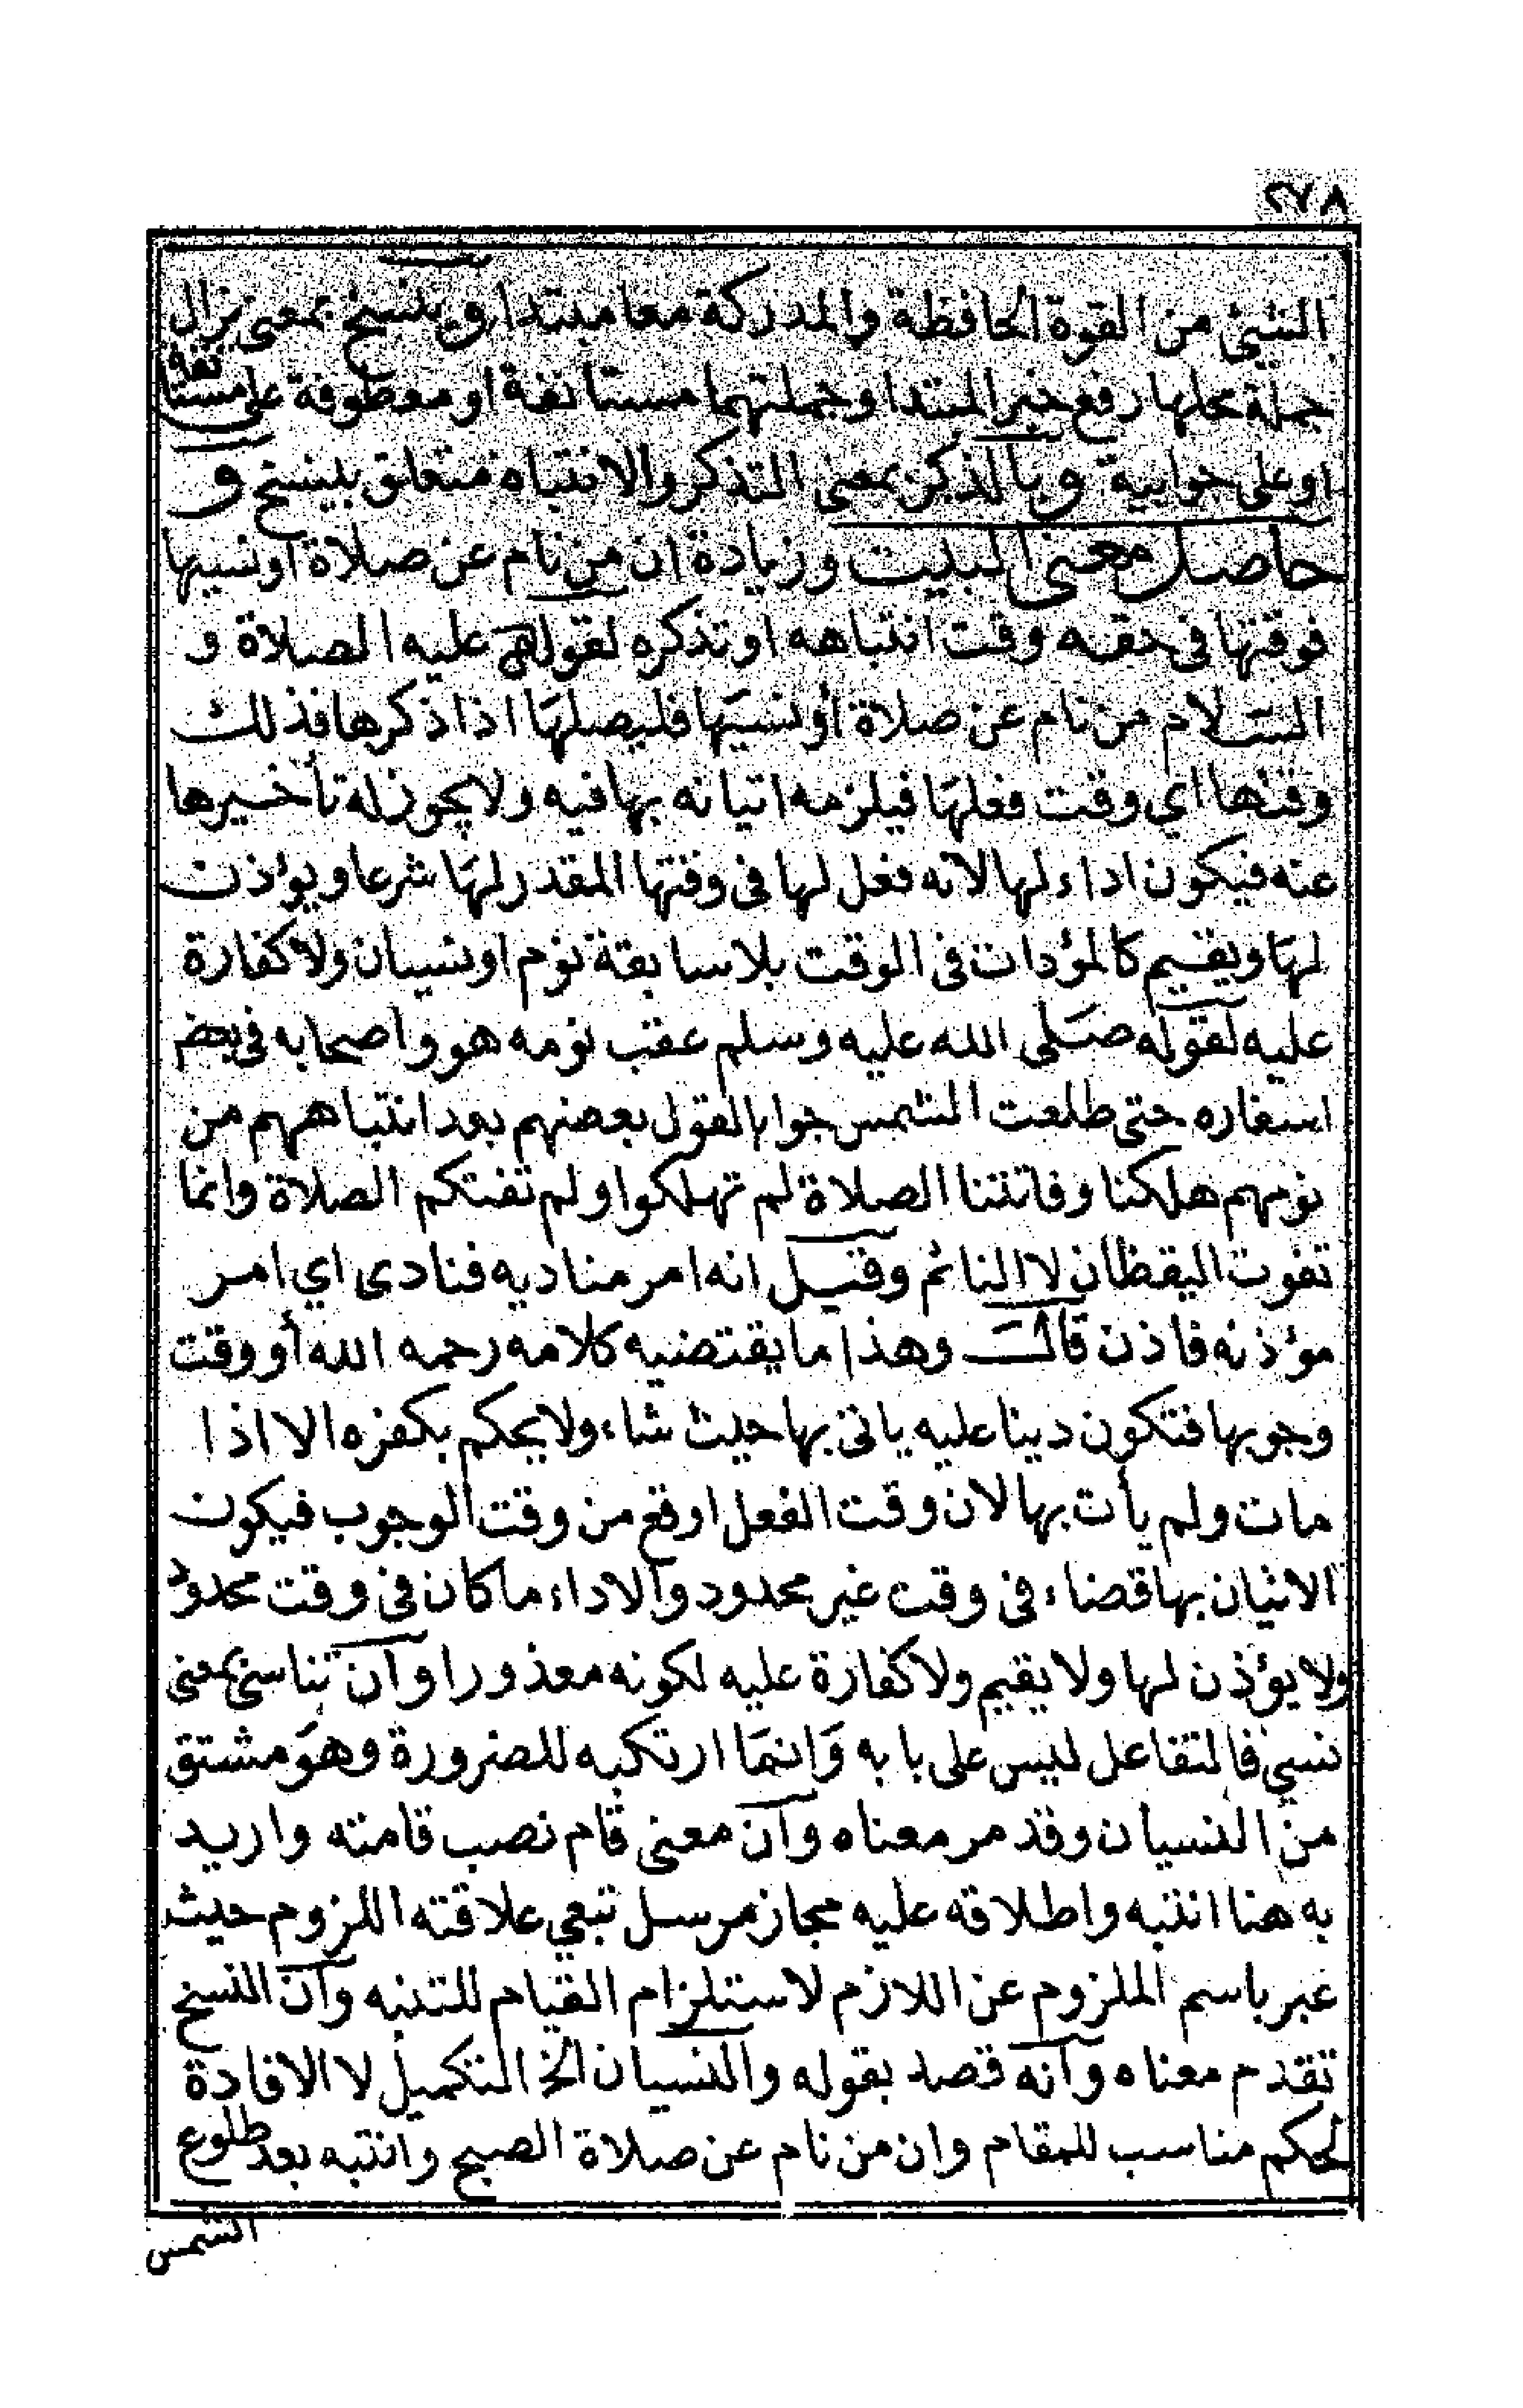 ٢٧٨
الشيئ من القوة الحافظة والمدركة معا مبتدا وينسخ بمعنى يزال
جملة محلها رفع خبر المبتدا وجملتهما مستانفة او معطوفة على مستانفة
او على جوابية وبالذكر بمعنى التذكر والانتباه متعلق بينسخ و
حاصل معنى البيت وزيادة ان من نام عن صلاة او نسيها
فوقتها في حقه وقت انتباهه او تذكره لقوله عليه الصلاة و
السلام من نام عن صلاة أو نسيها فليصلها اذا ذكرها فذلك
وقتها اي وقت فعلها فيلزمه اتيانه بها فيه ولا يجوز له تأخيرها
عنه فيكون اداء لها لانه فعل لها في وقتها المقدر لها شرعا ويؤذن
لها ويقيم كالمؤدات في الوقت بلا سابقة نوم او نسيان ولا كفارة
عليه لقوله صلى الله عليه وسلم عقب نومه هو واصحابه في بعض
اسفاره حتى طلعت الشمس جوابا لقول بعضهم بعد انتباههم من
نومهم هلكنا وفاتتنا الصلاة لم تهلكوا ولم تفتكم الصلاة وانما
تفوت اليقظان لا النائم وقيل انه امر مناديه فنادى اي امر
مؤذنه فاذن قالت وهذا ما يقتضيه كلامه رحمه الله أو وقت
وجوبها فتكون دينا عليه ياتي بها حيث شاء ولا يحكم بكفره الا اذا
مات ولم يأت بها لان وقت الفعل اوقع من وقت الوجوب فيكون
الاتيان بها قضاء في وقت غير محدود والاداء ما كان في وقت محدود
ولا يؤذن لها ولا يقيم ولا كفارة عليه لكونه معذورا وان تناسى بمعنى
نسي فالتفاعل ليس على بابه وانما ارتكبه للضرورة وهو مشتق
من النسيان وقد مر معناه وان معنى قام نصب قامته واريد
به هنا انتبه واطلاقه عليه مجاز مرسل تبعي علاقته اللزوم حيث
عبر باسم الملزوم عن اللازم لاستلزام القيام للتنبه وان النسخ
تقدم معناه وانه قصد بقوله والنسيان الخ التكميل لا الافادة
لحكم مناسب للمقام وان من نام عن صلاة الصبح وانتبه بعد طلوع
الشمس